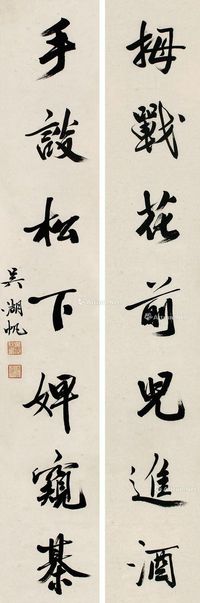 拇戰花前兒進酒
手談松下婢窺棊
吳湖帆